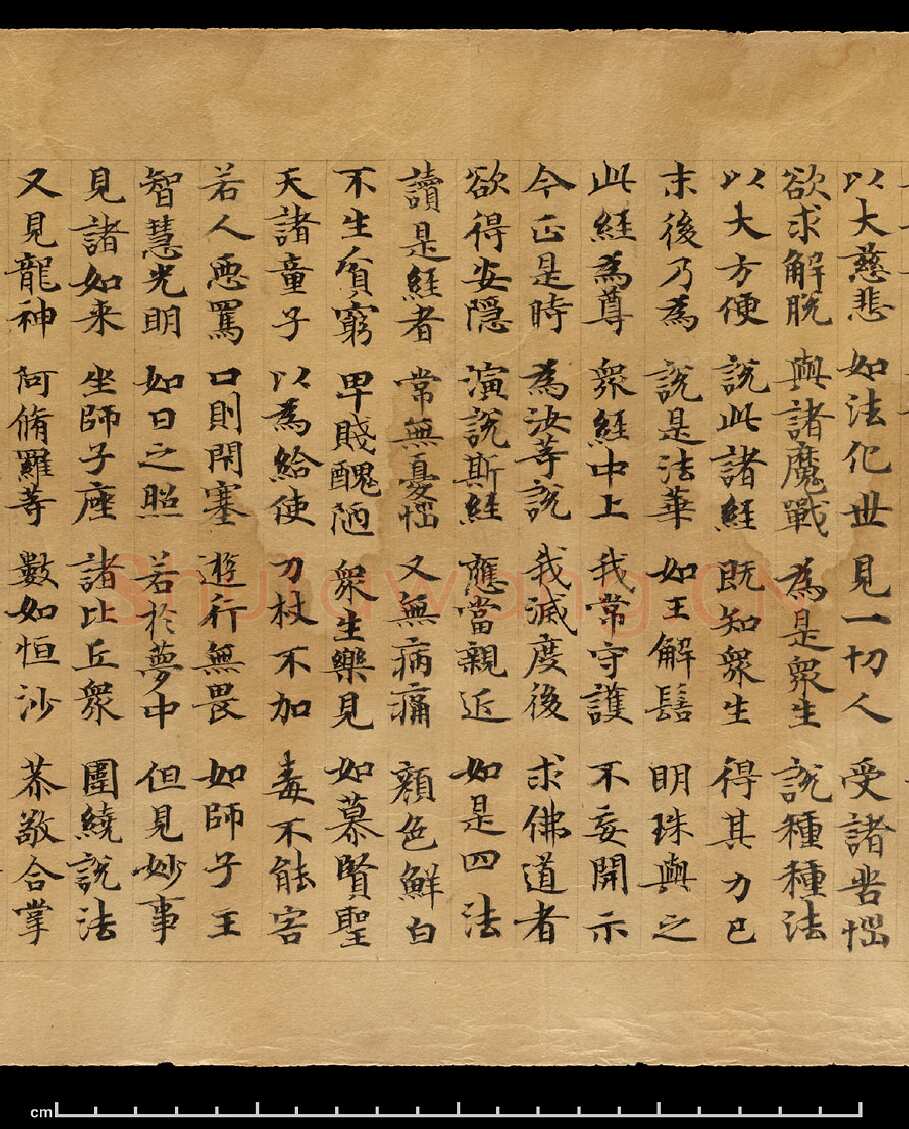 以大慈悲 如法化世 見一切人 受諸苦惱
欲求解脫 與諸魔戰 為是衆生 說種種法
以大方便 說此諸經 既知衆生 得其力已
末後乃為 說是法華 如王解髻 明珠與之
此經為尊 衆經中上 我常守護 不妄開示
今正是時 為汝等說 我滅度後 求佛道者
欲得安隱 演說斯經 應當親近 如是四法
讀是經者 常無憂惱 又無病痛 顏色鮮白
不生貧窮 卑賤醜陋 衆生樂見 如慕賢聖
天諸童子 以為給使 刀杖不加 毒不能害
若人惡罵 口則閇塞 遊行無畏 如師子王
智慧光明 如日之照 若於夢中 但見妙事
見諸如来 坐師子座 諸比丘衆 圍繞說法
又見龍神 阿脩羅等 數如恒沙 恭敬合掌
shufawang.CN
cm